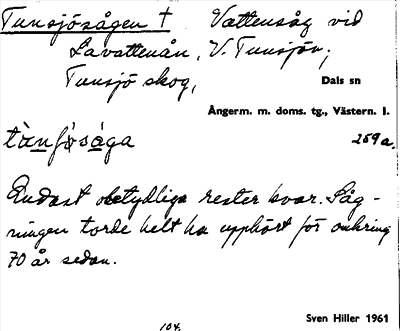 Tunsjösågen † Vattensåg vid
Lavattenån, V. Tunsjön;
Tunsjö skog,
Dals sn
Ångerm. m. doms. tg., Västern. l.
tùnʃösåga 259a.
Endast obetydliga rester kvar. Såg-
ningen torde helt ha upphört för omkring
70 år sedan.
Sven Hiller 1961
104.